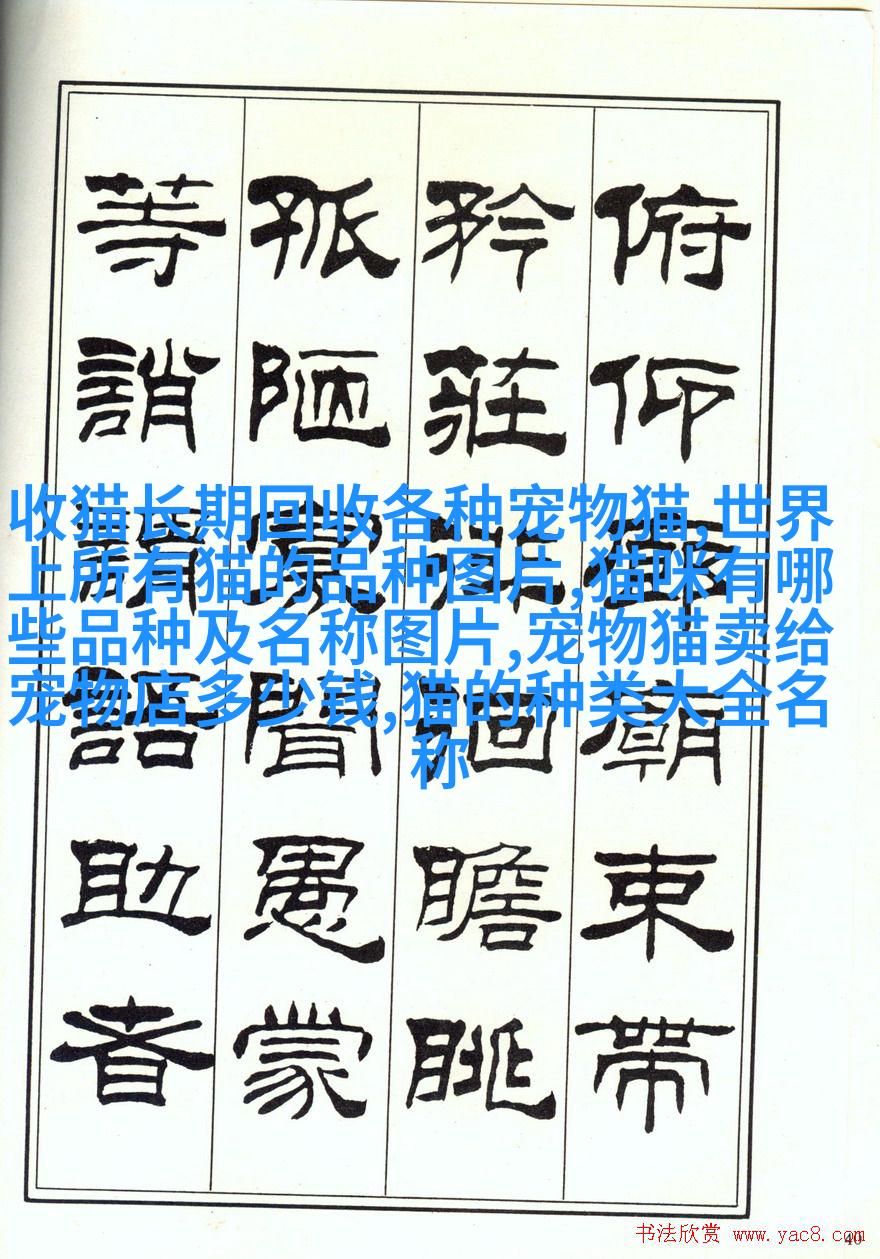 俯仰廊廟束帶
矜莊徘徊瞻眺
孤陋寡聞愚蒙
等誚謂語助者
收猫长期回收各种宠物猫,世界
上所有猫的品种图片,猫咪有哪
些品种及名称图片,宠物猫卖给
宠物店多少钱,猫的种类大全名
称
书法欣赏 www.yac8.com
40